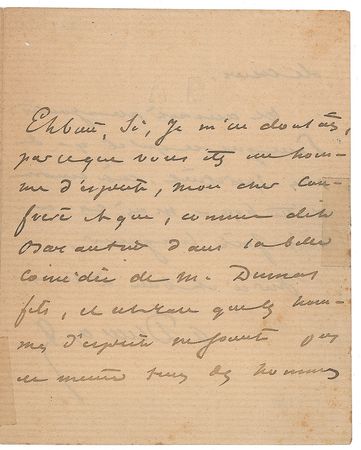 Eh bien, Si, Je m'en doutais,
parceque vous êtes un hom-
me d'esprit, mon cher con-
frère et que, comme dit
dans la belle
comédie de M. Dumas
fils, il est rare que les hom-
mes d'esprit ne soient pas
en même temps des hommes